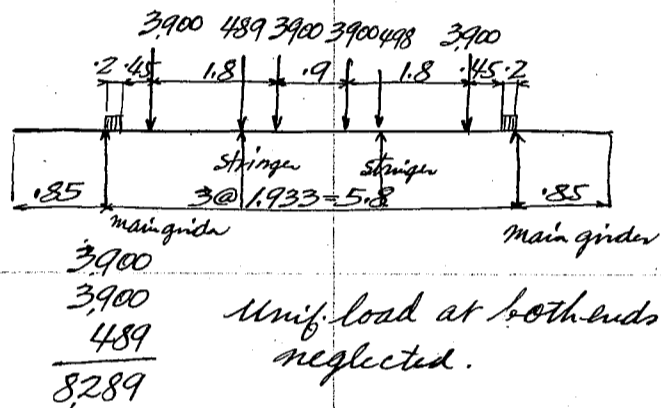 3,900 489 3900 3900 498 3,900
.2 .45 1.8 .9 1.8 .45 .2
stringer stringer
.85 3@1.933=5.8 .85
main girder main girder
3,900
3,900
489
8,289
Unif. load at both ends
neglected.